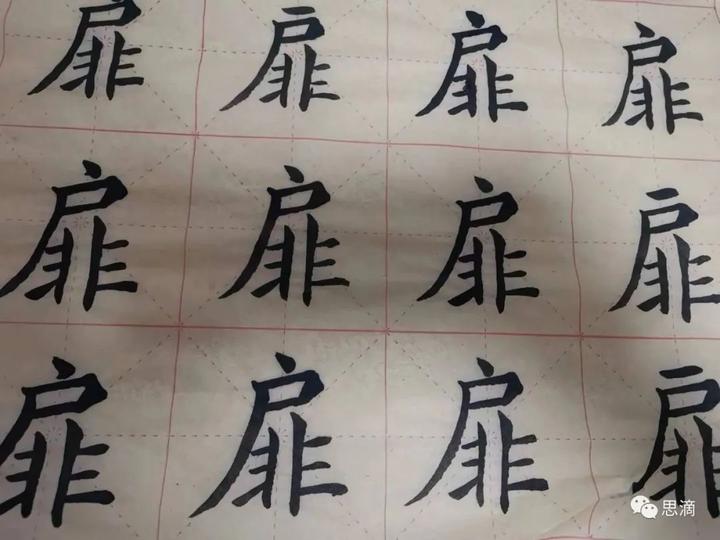 扉扉扉扉
扉扉扉扉
扉扉扉扉
思滴